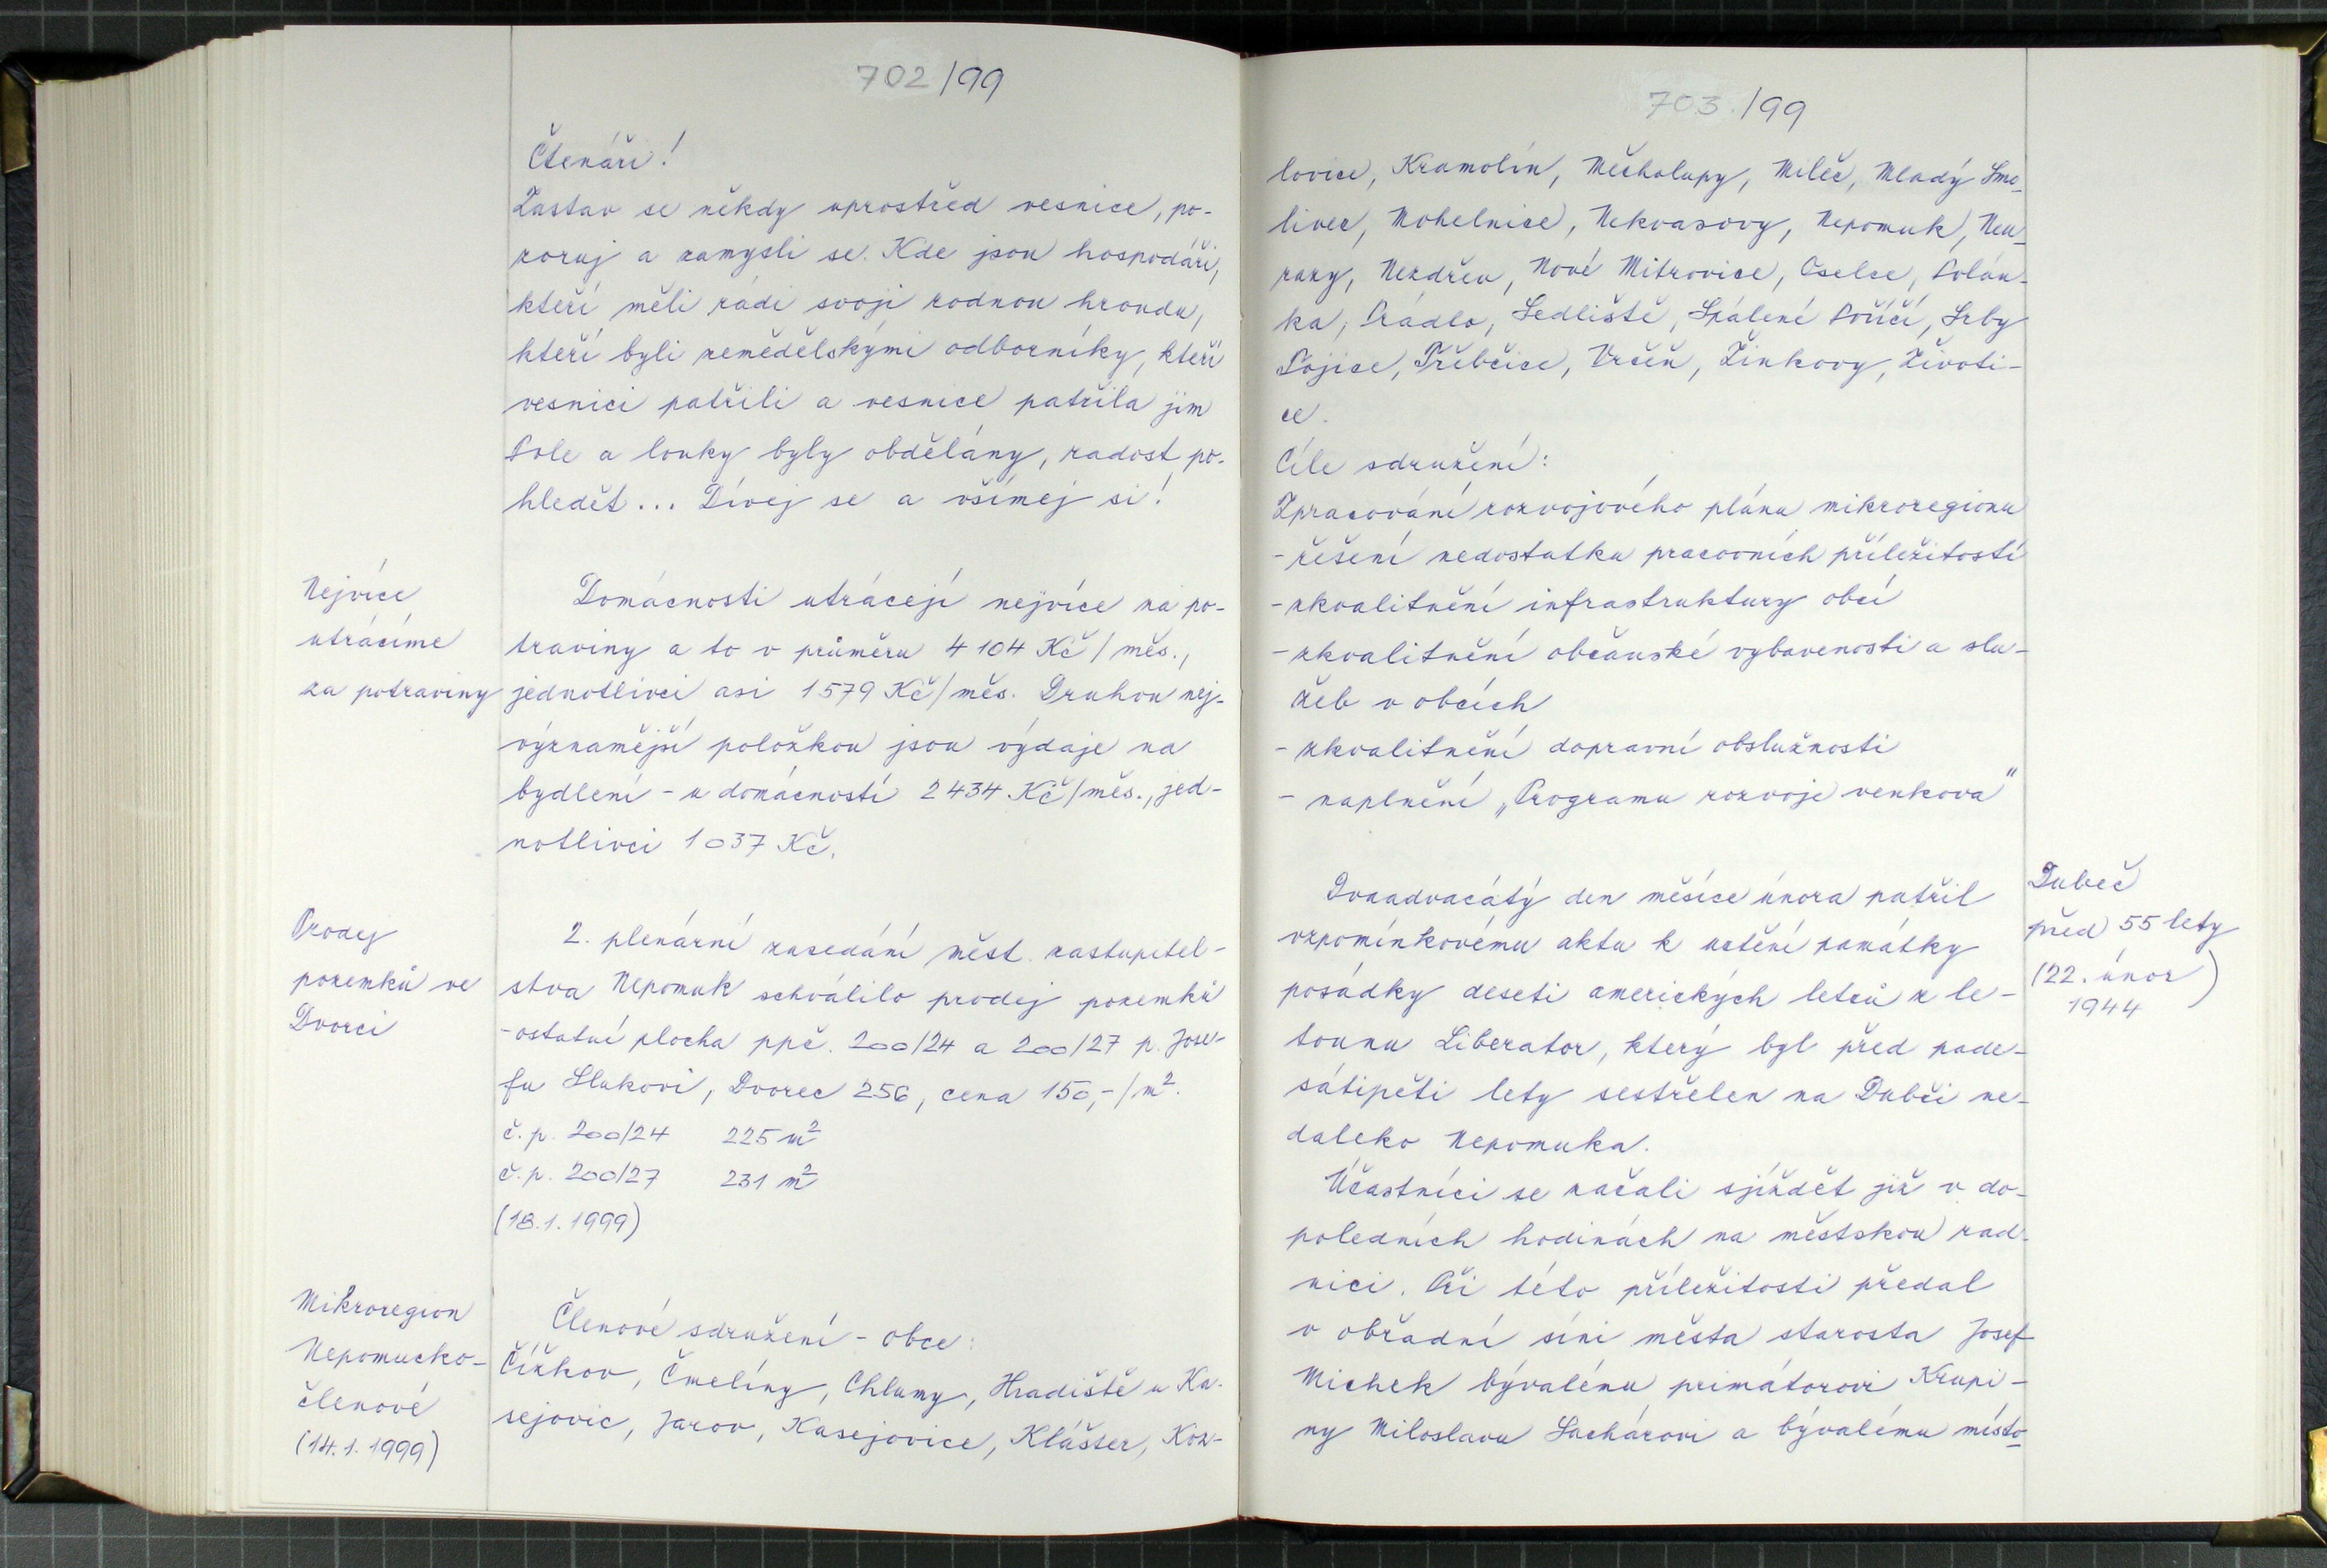 702/99
Čtenáři!
Zastav se někdy uprostřed vesnice, po-
zoruj a zamysli se. Kde jsou hospodáři,
kteří měli rádi svoji rodnou hroudu,
kteří byli zemědělskými odborníky, kteří
vesnici patřili a vesnice patřila jim
Pole a louky byly obdělány, radost po-
hledět... Dívej se a všímej si!
Nejvíce
utrácíme
za potraviny
Domácnosti utrácejí nejvíce na po-
traviny a to v průměru 4 104 Kč/měs.,
jednotlivci asi 1 579 Kč/měs. Druhou nej-
významější položkou jsou výdaje na
bydlení - u domácností 2 434 Kč/měs., jed-
notlivci 1 037 Kč.
Prodej
pozemků ve
Dvorci
2. plenární zasedání měst. zastupitel-
stva Nepomuk schválilo prodej pozemků
-ostatní plocha ppč. 200/24 a 200/27 p. Jose-
fu Slukovi, Dvorec 256, cena 150,-/m²
č.p. 200/24 225 m²
č.p. 200/27 231 m²
(18.1.1999)
Mikroregion
Nepomucko-
členové
(14.1.1999)
Členové sdružení - obce:
Čížkov, Čmelíny, Chlumy, Hradiště u Ka-
sejovic, Jarov, Kasejovice, Klášter, Koz-
703/99
lovice, Kramolín, Měcholupy, Mileč, Mladý Smo-
livec, Mohelnice, Nekvasovy, Nepomuk, Neu-
razy, Nezdřev, Nové Mitrovice, Oselce, Polán-
ka, Prádlo, Sedliště, Spálené Poříčí, Srby
Tojice, Třebčice, Vrčeň, Žinkovy, Životi-
ce.
Cíle sdružení:
Zpracování rozvojového plánu mikroregionu
- řešení nedostatku pracovních příležitostí
- zkvalitnění infrastruktury obcí
- zkvalitnění občanské vybavenosti a slu-
žeb v obcích
- zkvalitnění dopravní obslužnosti
- naplnění „Programu rozvoje venkova"
Dubeč
před 55 lety
(22. únor
1944)
Dvaadvacátý den měsíce února patřil
vzpomínkovému aktu k uctění památky
posádky deseti amerických letců z le-
tounu Liberator, který byl před pade-
sátipěti lety sestřelen na Dubči ne-
daleko Nepomuka.
Účastníci se začali sjíždět již v do-
poledních hodinách na městskou rad-
nici. Při této příležitosti předal
v obřadní síni města starosta Josef
Michek bývalému primátorovi Krupi-
ny Miloslavu Sachárovi a bývalému místo-